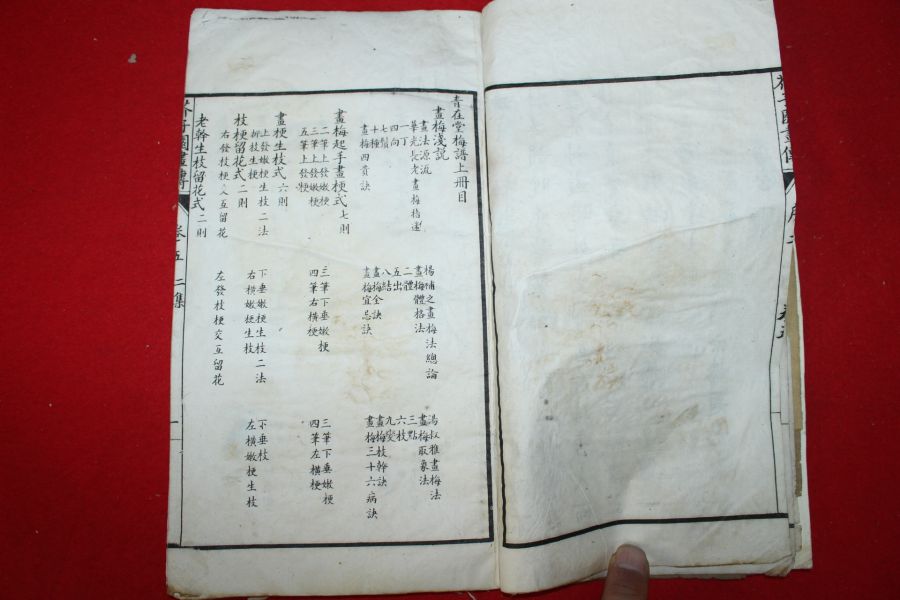 青在堂梅譜上冊目
畫梅淺說
畫法源流 楊補之畫梅法總論 湯叔雅畫梅法
華光長老畫梅指迷 畫梅體格法 畫梅取象法
一丁 二體 三點
四向 五出 六枝
七鬚 八結 九變
十種 畫梅全訣 畫梅枝幹訣
畫梅四貴訣 畫梅宜忌訣 畫梅三十六病訣
畫梅起手畫梗式七則
二筆上發嫩梗 三筆下垂嫩梗 三筆下垂嫩梗
三筆上發嫩梗 四筆右橫梗 四筆左橫梗
五筆上發梗
畫梗生枝式六則
上發嫩梗生枝二法 下垂嫩梗生枝二法 下垂枝
折枝生梗 右橫嫩梗生枝 左橫嫩梗生枝
枝梗留花式二則
右發枝梗交互留花 左發枝梗交互留花
老幹生枝留花式二則
芥子園畫傳 卷五 二集 一